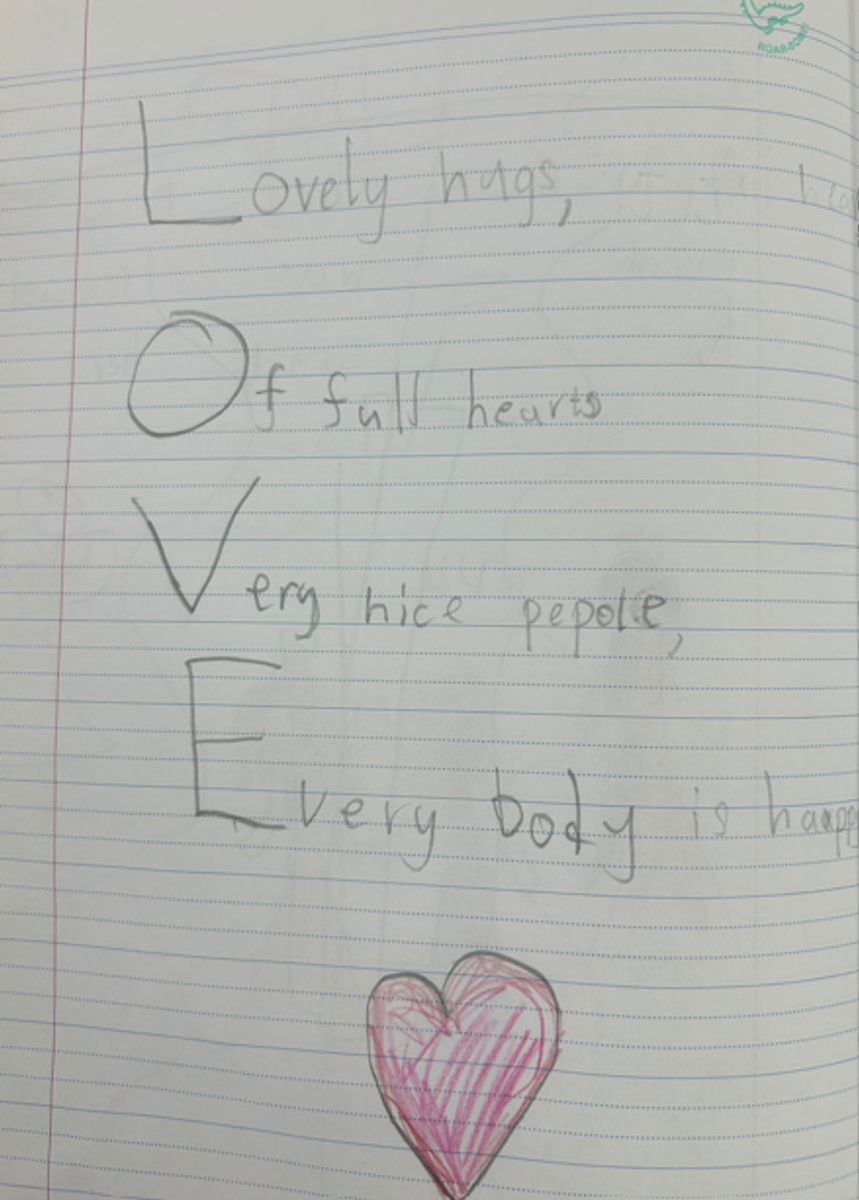 ROAR-SOME!
Lovely hugs,
Of full hearts
Very nice pepole,
Every body is happ